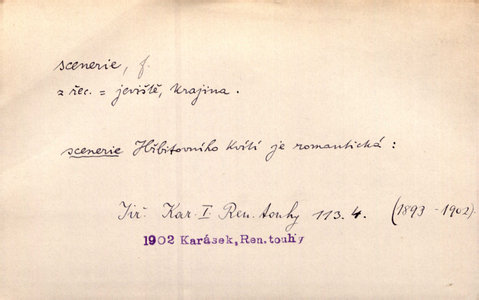 scenerie, f.
z řec. = jeviště, krajina.
scenerie Hřbitovního kvítí je romantická:
Jiř. Kar. I Ren. touhy 113.4. (1893-1902).
1902 Karásek, Ren.touhy